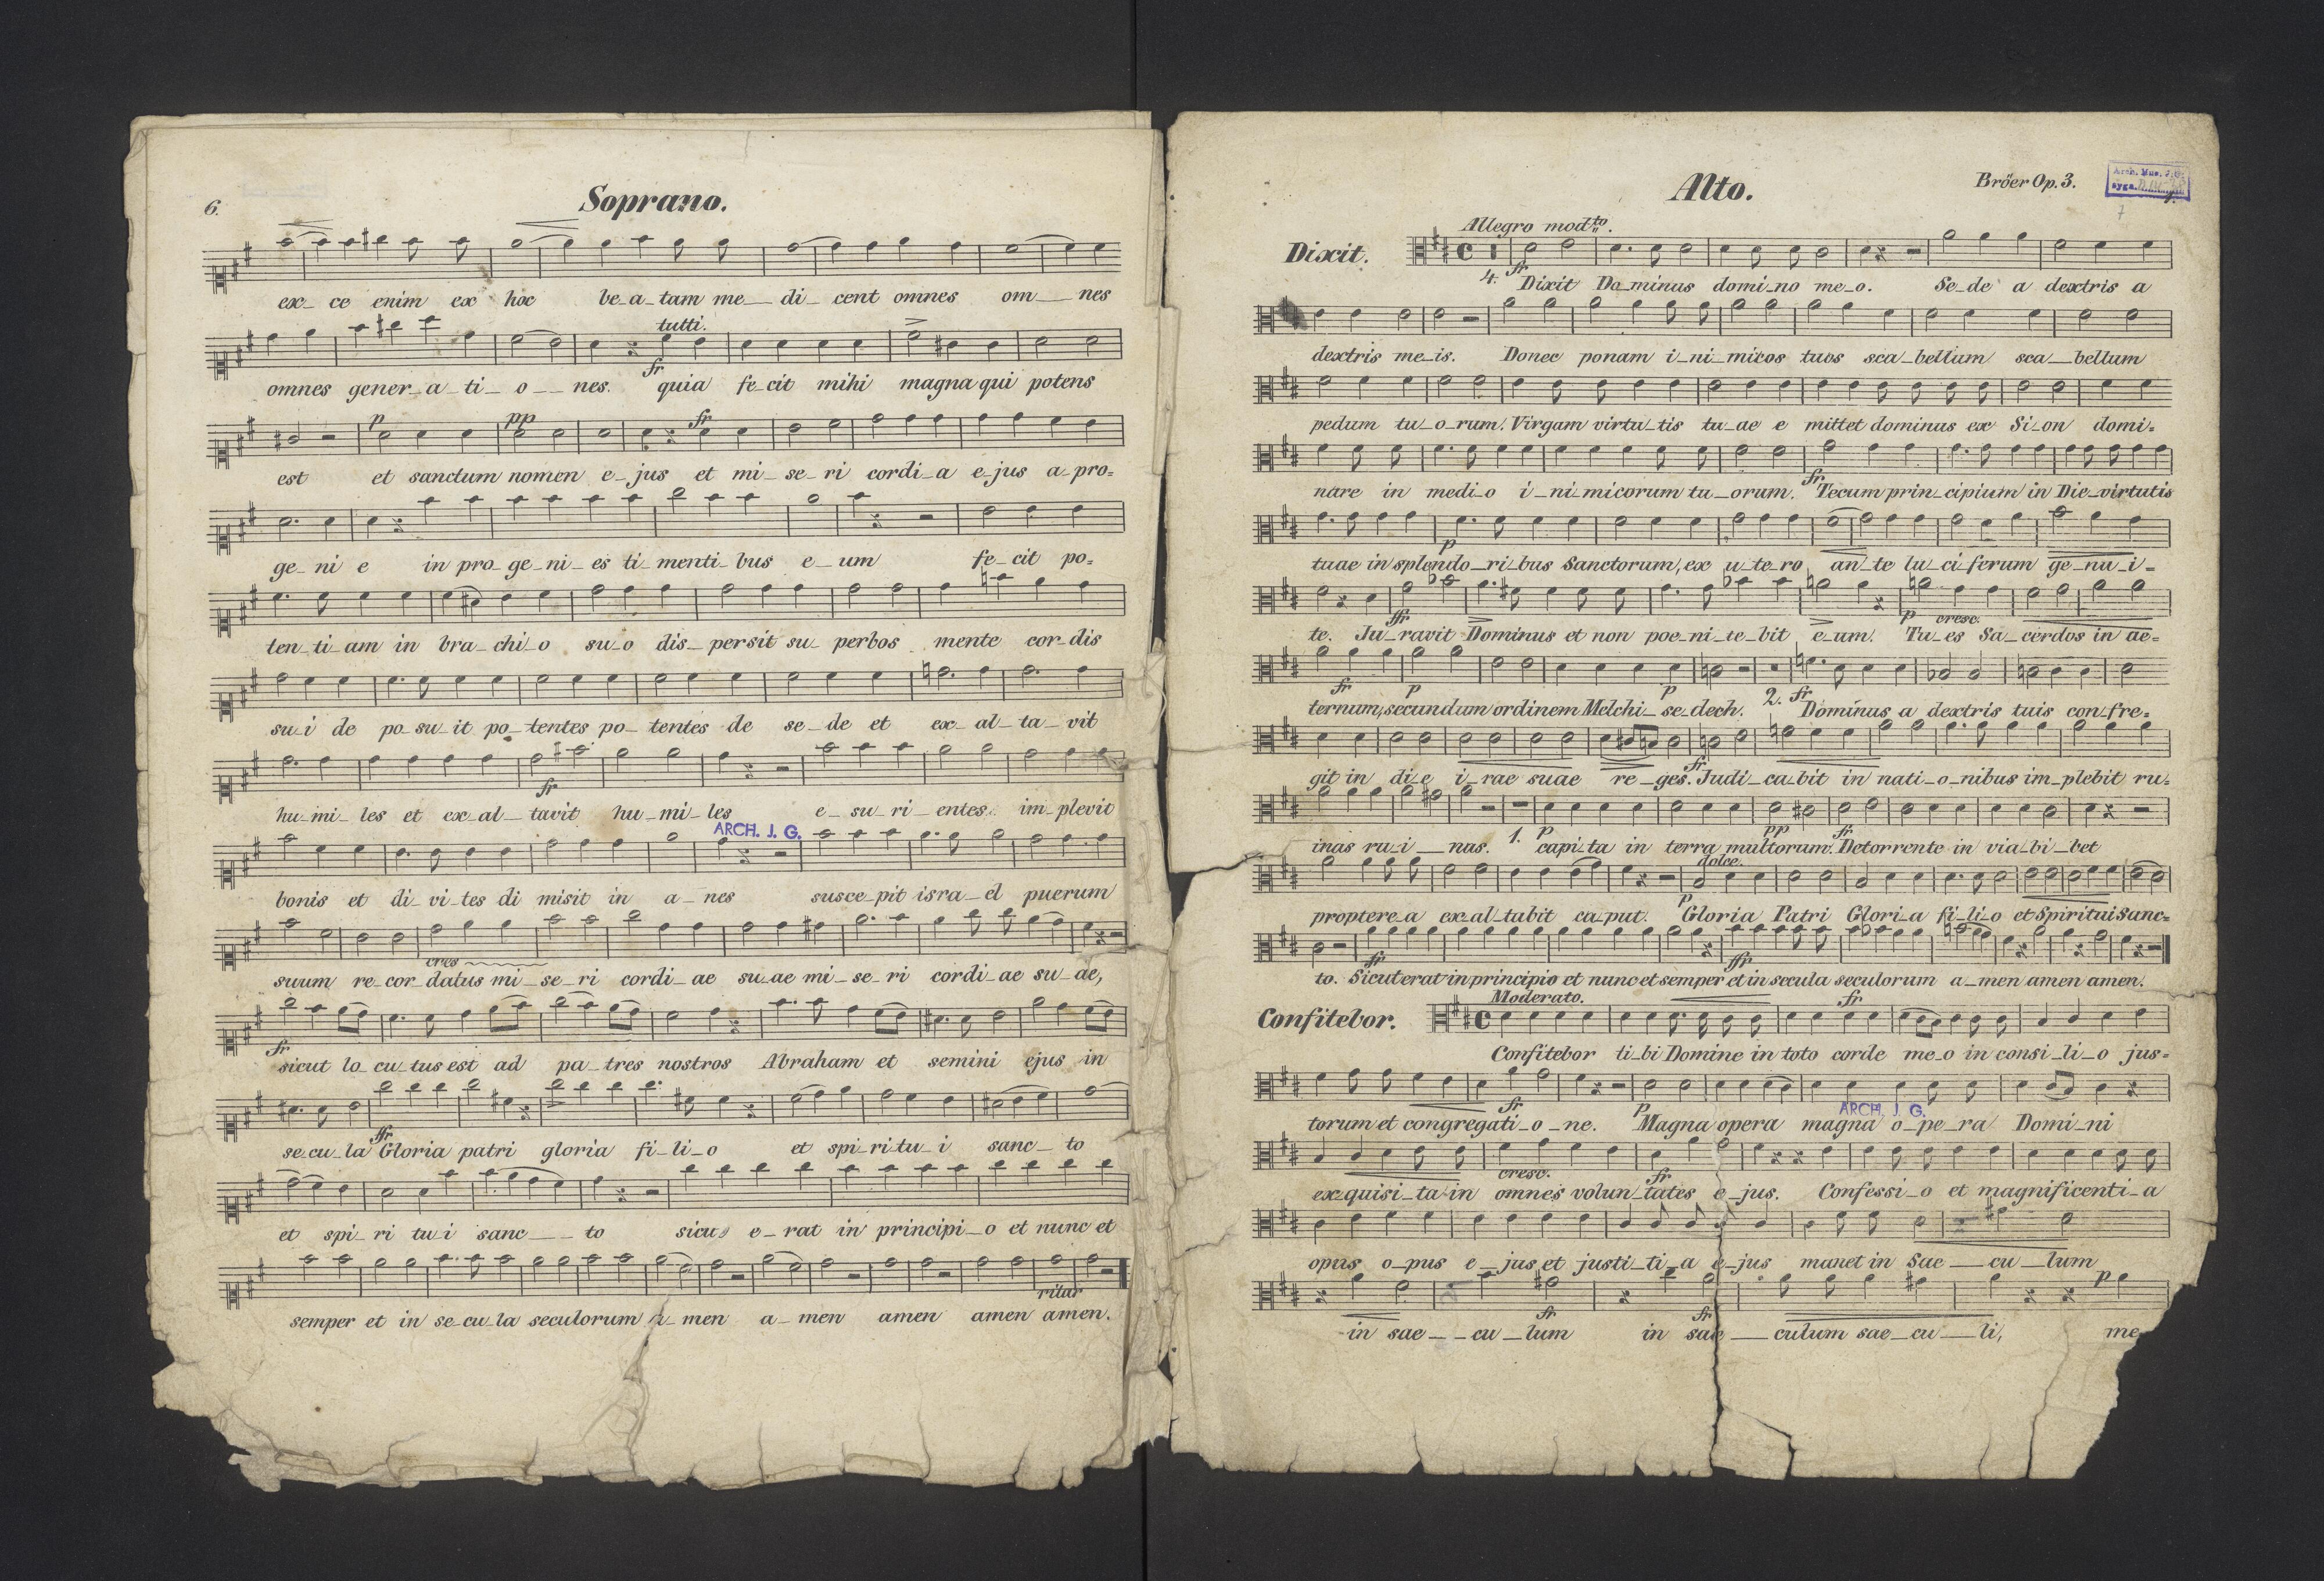 6.
Soprano.
ex_ ce enim ex hoc be_a_tam me__ di_ cent omnes om__ nes
tutti.
fr
omnes gener_a_ti_ o__ nes. quia fe_cit mihi magna qui potens
p pp fr
est et sanctum nomen e_jus et mi_se_ri cordi_a e_jus a_pro=
ge_ni e in pro_ge_ni_es ti_menti_bus e_um fe_cit po=
ten_ti_am in bra_chi_o su_o dis_persit su_perbos mente cor_dis
su_i de po_su_it po_tentes po_tentes de se_de et ex_al_ta_vit
fr
hu_mi_les et ex_al_tavit hu_mi_les e_su_ri_entes. im_plevit
ARCH. J. G.
bonis et di_vi_tes di misit in a_nes susce_pit isra_el puerum
cres
suum re_cor_datus mi_se_ri cordi_ae su_ae mi_se_ri cordi_ae su_ae,
fr
sicut lo_cu_tus est ad pa_tres nostros Abraham et semini ejus in
ffr
se_cu_la Gloria patri gloria fi_li_o et spi_ri_tu_i sanc_to
et spi_ri tu_i sanc___to sicu e_rat in principi_o et nunc et
ritar
semper et in se_cu_la seculorum a_men a_men amen amen amen.
Alto.
Bröer Op. 3.
Arch. Mus. J.G.
sygn.
7
Allegro mod.to
Dixit.
4. fr
Dixit Do_minus domi_no me_o. Se_de a dextris a
dextris me_is. Donec ponam i_ni_micos tuos sca_bellum sca_bellum
pedum tu_o_rum. Virgam virtu_tis tu_ae e mittet dominus ex Si_on domi=
fr
nare in medi_o i_ni_micorum tu_orum. Tecum prin_cipium in Die_virtutis
p
tuae in splendo_ri_bus Sanctorum, ex u_te_ro an_te lu_ci_ferum ge_nu_i_
ffr p cresc.
te. Ju_ravit Dominus et non poe_ni_te_bit e_um. Tu_es Sa_cerdos in ae=
fr p p 2. fr
ternum, secundum ordinem Melchi_se_dech. Dominus a dextris tuis con_fre=
fr
git in di_e i_rae suae re_ges. Judi_ca_bit in nati_o_nibus im_plebit ru=
1. p pp fr
inas ru_i__nas. capi_ta in terra multorum. Detorrente in via_bi_bet
dolce.
p
proptere_a ex_al_tabit ca_put. Gloria Patri Glori_a fi_li_o et Spiritui Sanc=
fr ffr
to. Sicut erat in principio et nunc et semper et in secula seculorum a_men amen amen.
Moderato.
fr
Confitebor.
Confitebor ti_bi Domine in toto corde me_o in consi_li_o jus=
fr p
ARCH. J. G.
torum et congregati_o_ne. Magna opera magna o_pe_ra Domi_ni
cresc. fr
exquisi_ta in omnes volun_tates e_jus. Confessi_o et magnificenti_a
opus o_pus e_jus et justi_ti_a e_jus manet in Sae__cu_lum
fr fr p
in sae__cu_lum in sae__culum sae_cu__li, me